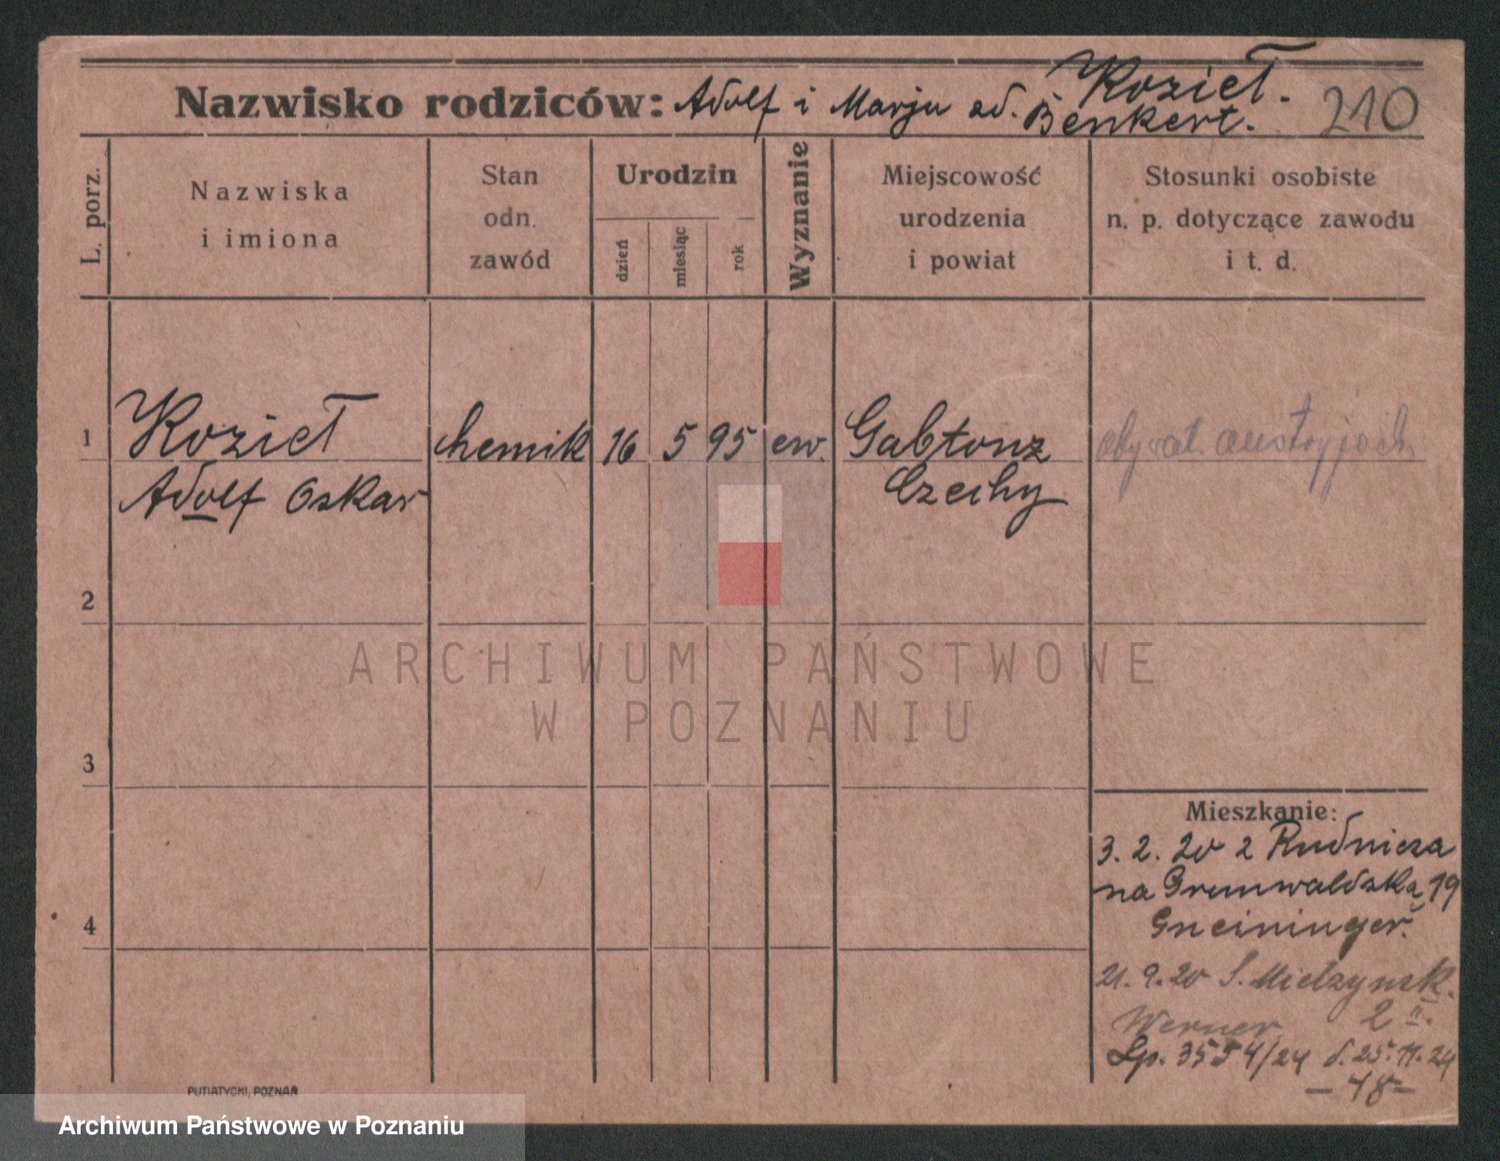 Nazwisko rodziców: Adolf i Marja zd. Kozieł. Benkert. 210
L. porz.
Nazwiska
i imiona
Stan
odn.
zawód
Urodzin
dzień
miesiąc
rok
Wyznanie
Miejscowość
urodzenia
i powiat
Stosunki osobiste
n. p. dotyczące zawodu
i t. d.
1 Kozieł chemik 16 5 95 ew. Gabtonz obywat. austryjack
Adolf Oskar Czechy
2
ARCHIWUM PAŃSTWOWE
W POZNANIU
3
Mieszkanie:
3. 2. 20 z Rudnicza
na Grunwaldzką 19
Gneininger.
4
21. 9. 20 S. Mielzynsk.
Werner 2 II.
Lp. 3554/24 d. 25. 11. 24
– 48 –
PUTIATYCKI, POZNAŃ
Archiwum Państwowe w Poznaniu